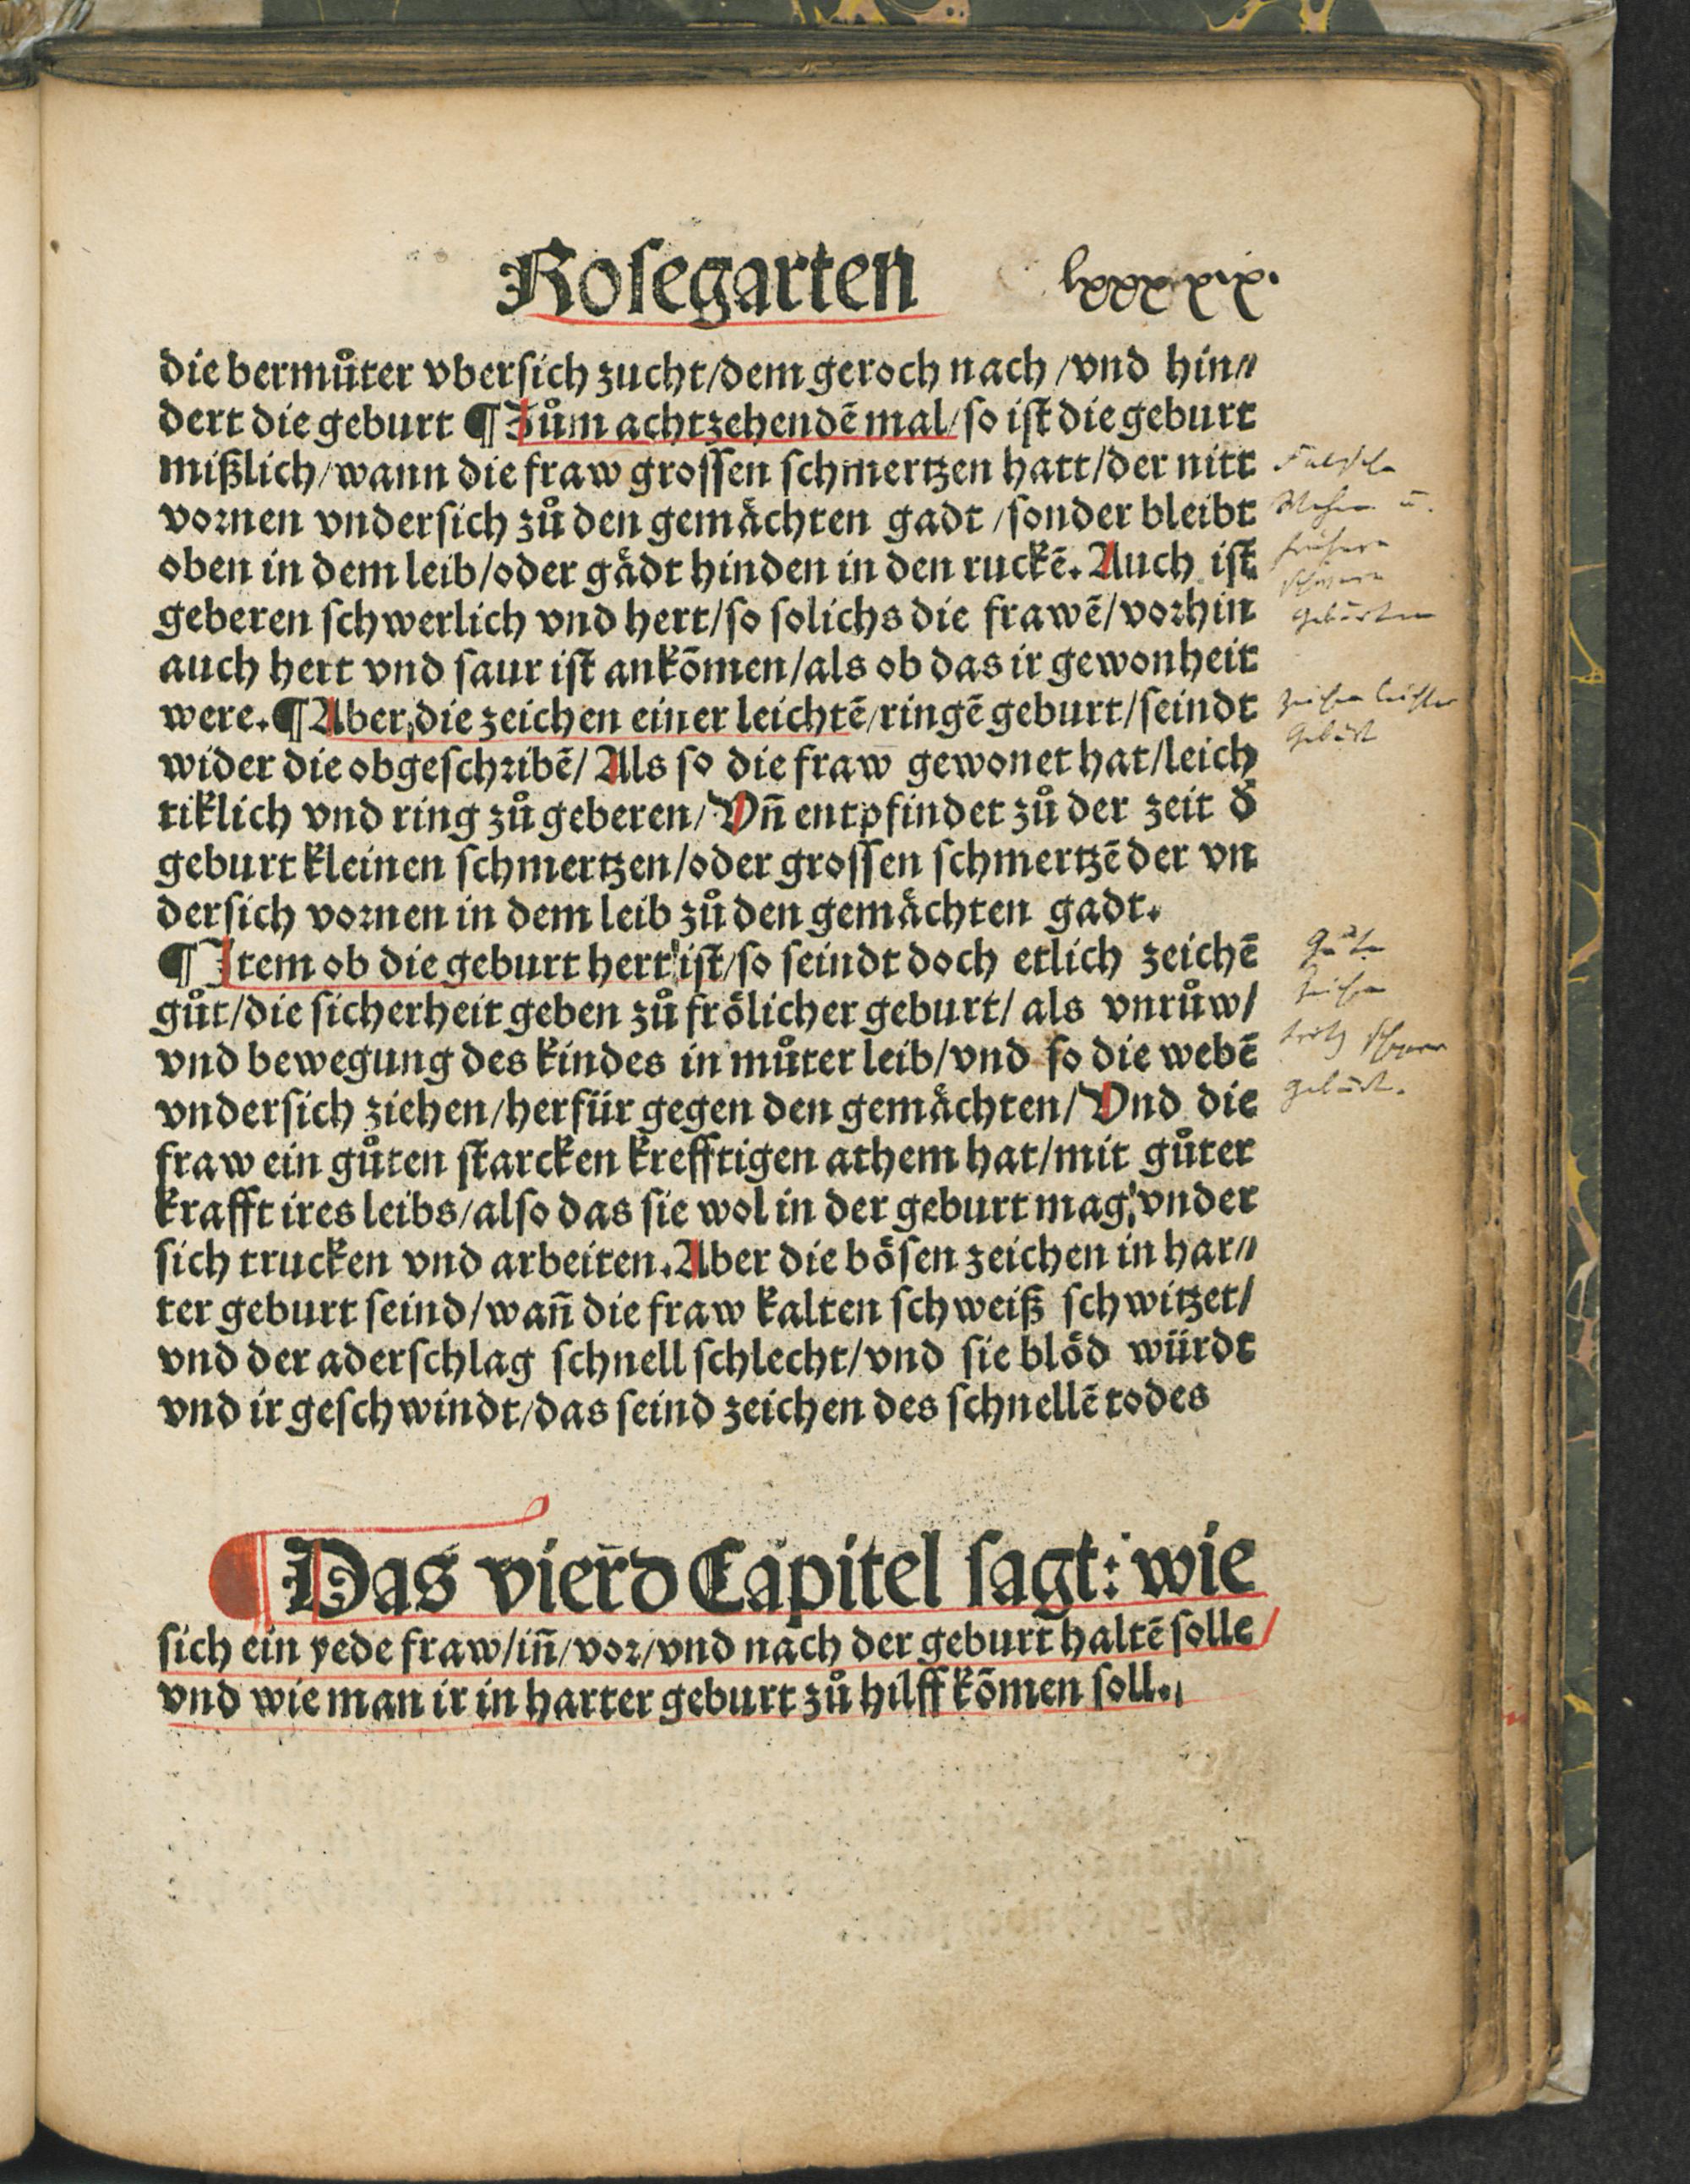 Rosegarten lxxxxix.
die bermůter vbersich zucht/dem geroch nach/vnd hin⸗
dert die geburt ¶ Zům achtzehendē mal/so ist die geburt
mißlich/wann die fraw grossen schmertzen hatt/der nitt
vornen vndersich zů den gemächten gadt/sonder bleibt
oben in dem leib/oder gådt hinden in den ruckē. Auch ist
geberen schwerlich vnd hert/so solichs die frawē/vorhin
auch hert vnd saur ist ankōmen/als ob das ir gewonheit
were. ¶ Aber die zeichen einer leichtē/ringē geburt/seindt
wider die obgeschribē/ Als so die fraw gewonet hat/leich
tiklich vnd ring zů geberen/ Vn̄ entpfindet zů der zeit d̄
geburt kleinen schmertzen/oder grossen schmertzē der vn
dersich vornen in dem leib zů den gemächten gadt.
¶ Item ob die geburt hert ist/so seindt doch etlich zeichē
gůt/die sicherheit geben zů frölicher geburt/ als vnrůw/
vnd bewegung des kindes in můter leib/vnd so die webē
vndersich ziehen/herfür gegen den gemächten/ Vnd die
fraw ein gůten starcken krefftigen athem hat/mit gůter
krafft ires leibs/also das sie wol in der geburt mag/vnder
sich trucken vnd arbeiten. Aber die bösen zeichen in har⸗
ter geburt seind/wan̄ die fraw kalten schweiß schwitzet/
vnd der aderschlag schnell schlecht/vnd sie blöd würdt
vnd ir geschwindt/das seind zeichen des schnellē todes
¶ Das vierd Capitel sagt: wie
sich ein yede fraw/in̄/vor/vnd nach der geburt haltē solle/
vnd wie man ir in harter geburt zů hilff kōmen soll.
Wehen u.
frühere
schwere
Geburten
Zeichen leichter
Geburt
Gute
Zeichen
trotz schwerer
Geburt.